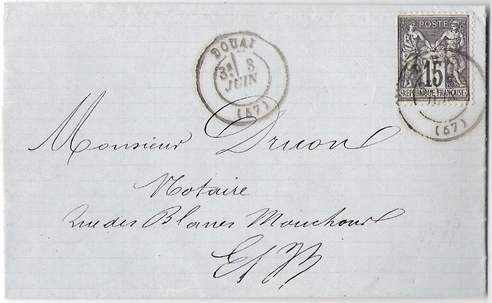 DOUAI
3E 8
JUIN
(57)
POSTE
15
REPUBLIQUE FRANÇAISE
(57)
Monsieur Druon
Notaire
Rue des Blancs Mouchons
E/V